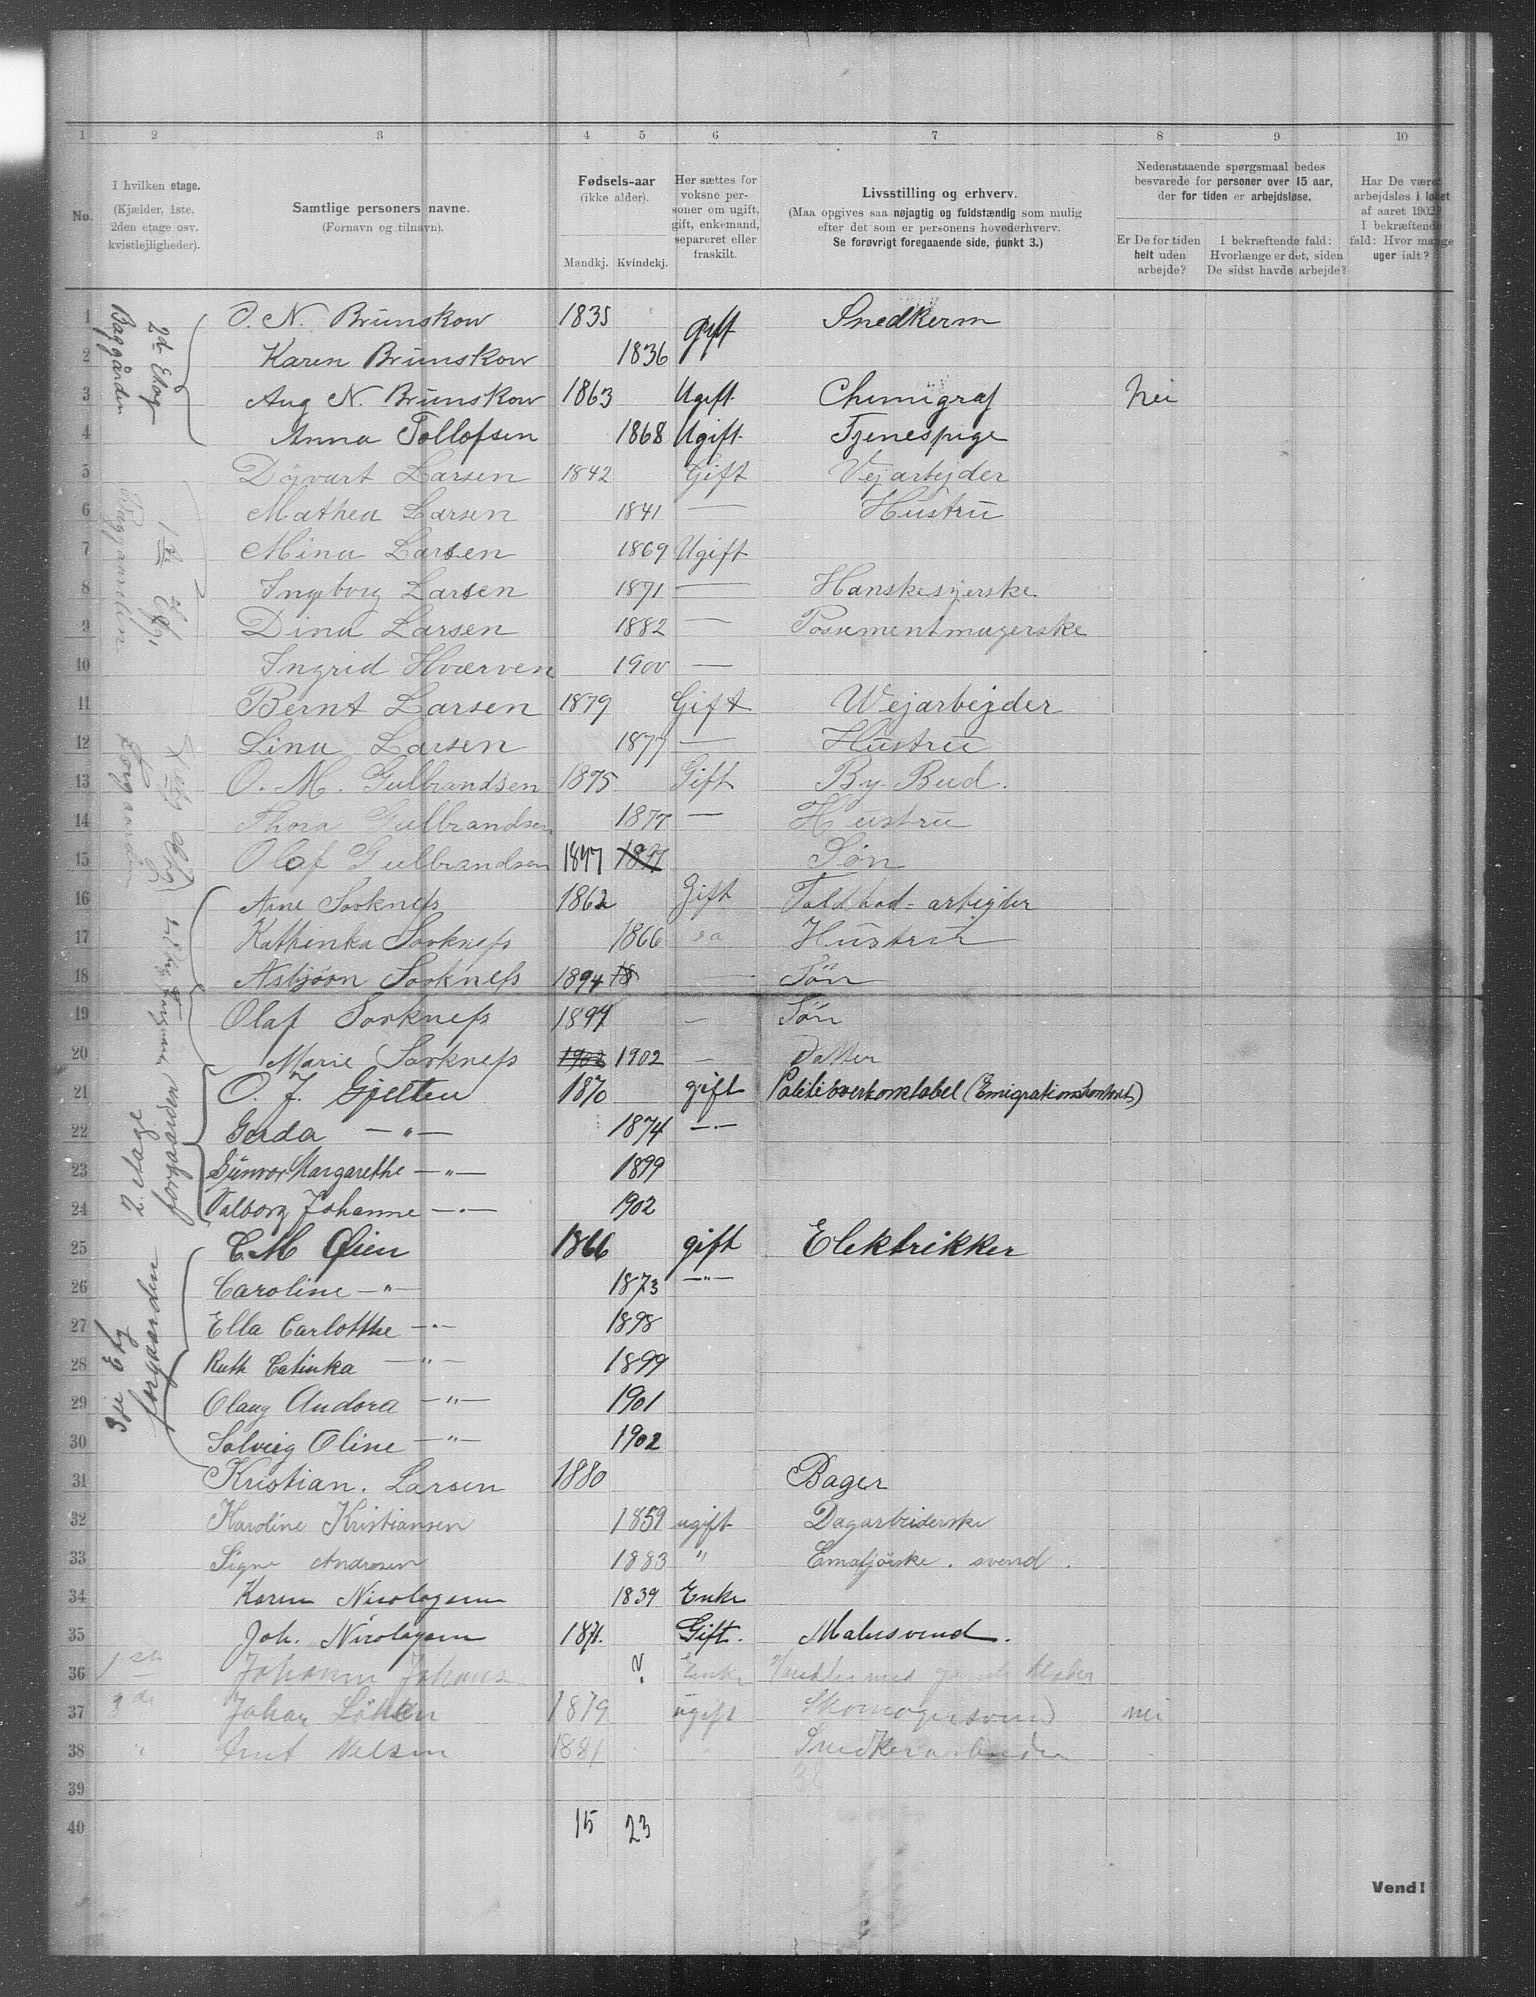 1 2 3 4 5 6 7 8 9 10
No.
I hvilken etage.
(Kjælder, 1ste, 2den etage osv. kvistlejligheder).
Samtlige personers navne.
(Fornavn og tilnavn).
Fødsels-aar
(ikke alder).
Mandkj. Kvindekj.
Her sættes for voksne personer om ugift, gift, enkemand, separeret eller fraskilt.
Livsstilling og erhverv.
(Maa opgives saa nøjagtig og fuldstændig som mulig efter det som er personens hovederhverv.
Se forøvrigt foregaaende side, punkt 3.)
Nedenstaaende spørgsmaal bedes besvarede for personer over 15 aar, der for tiden er arbejdsløse.
Er De for tiden helt uden arbejde?
I bekræftende fald: Hvorlænge er det, siden De sidst havde arbejde?
Har De været arbejdsløs i løbet af aaret 1902? I bekræftende fald: Hvor mange uger ialt?
2de Etag Baggården
1 O. N. Brunskow 1835 gift Snedkerm
2 Karen Brunskow 1836
3 Aug N. Brunskow 1863 Ugift Chemigraf Nei
4 Anna Tollofsen 1868 Ugift Tjenespige
5 Døvart Larsen 1842 Gift Vejarbejder
6 Mathea Larsen 1841 — Hustru
7 Mina Larsen 1869 Ugift
8 Ingborg Larsen 1871 — Hanskesyerske
9 Dina Larsen 1882 — Possementmagerske
10 Ingrid Hværven 1900 —
11 Bernt Larsen 1879 Gift Wejarbejder
12 Lina Larsen 1877 — Hustru
13 O. M. Gulbrandsen 1875 Gift By-Bud.
14 Thora Gulbrandsen 1877 — Hustru
15 Olaf Gulbrandsen 1897 1897 Søn
16 Arne Sorkness 1862 Gift Toldbod=arbejder
17 Kathinka Sorkness 1866 Hustru
18 Asbjøon Sorkness 1894 18 — Søn
19 Olaf Sorkness 1897 — Søn
20 Marie Sorkness 1902 1902 — Datter
2. etage forgaarden
21 O. J. Gjelten 1870 gift Politioverkonstabel (Emigrationskontoret)
22 Gerda —"— 1874 —"—
23 Gunvor Margarethe —"— 1899
24 Valborg Johanne —"— 1902
3die Etg forgaarden
25 C. M Øien 1866 gift Elektrikker
26 Caroline —"— 1873 —"—
27 Ella Carlotthe —"— 1898
28 Ruth Catinka —"— 1899
29 Olaug Andora —"— 1901
30 Solveig Oline —"— 1902
31 Kristian. Larsen 1880 Bager
32 Karoline Kristiansen 1859 ugift Dagarbeiderske
33 Signe Andresen 1883 " svend.
34 Karen Nicolaysen 1839 Enke
35 Joh. Nicolaysen 1871. Gift. Malersvend.
36 1ste Johanne ? Enke
37 3de Johan 1879 ugift Skomagersvend nei
38 " Nilsen 1881 Snedkerarbeider
39 38
40 15 23
Vend!